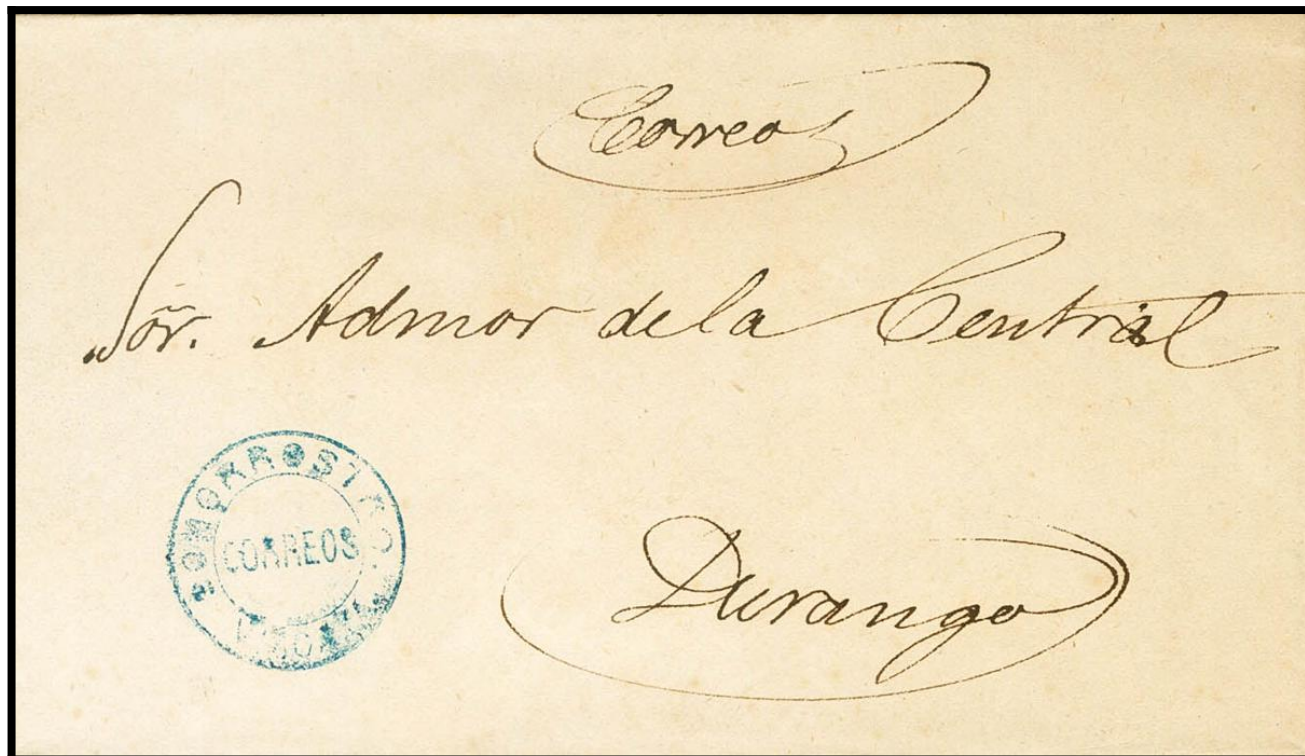 Correos
Sor. Admor de la Central
SOMORROSTRO.
CORREOS
VIZCAYA
Durango